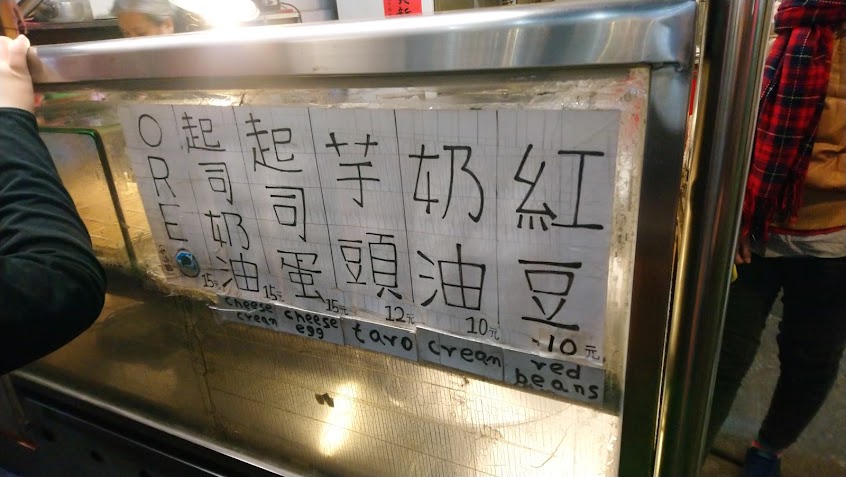 紅豆
10元
奶油
10元
芋頭
12元
起司蛋
15元
起司奶油
15元
ORE
15元
cheese
crean
cheese
egg
taro
crean
red
beans